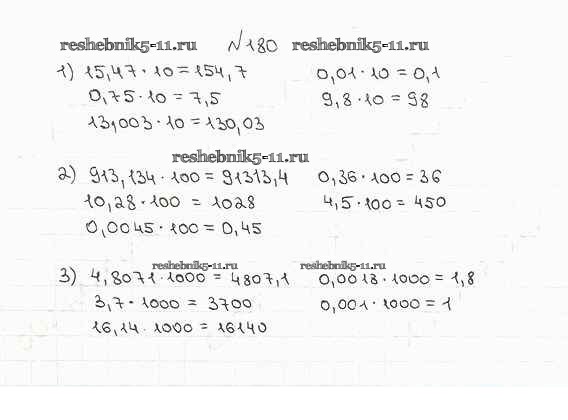 reshebnik5-11.ru №180 reshebnik5-11.ru
1) 15,47 · 10 = 154,7 0,01 · 10 = 0,1
0,75 · 10 = 7,5 9,8 · 10 = 98
13,003 · 10 = 130,03
reshebnik5-11.ru
2) 913,134 · 100 = 91313,4 0,36 · 100 = 36
10,28 · 100 = 1028 4,5 · 100 = 450
0,0045 · 100 = 0,45
reshebnik5-11.ru reshebnik5-11.ru
3) 4,8071 · 1000 = 4807,1 0,0018 · 1000 = 1,8
3,7 · 1000 = 3700 0,001 · 1000 = 1
16,14 · 1000 = 16140